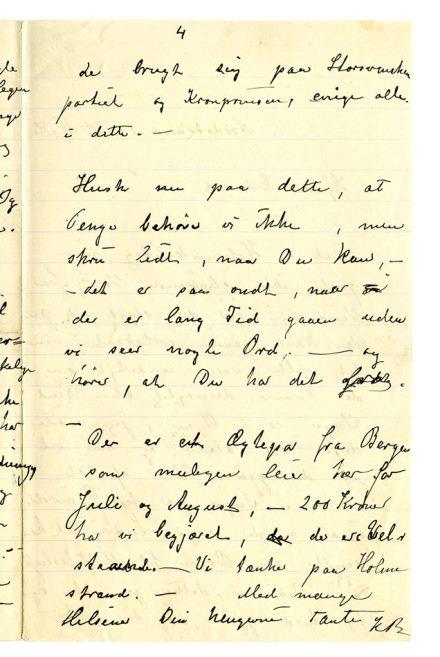 4
de brugt sig paa Storsvenske
partiet og Kronprinsen, enige alle
i dette. —
Husk nu paa dette, at
Penge behøve vi ikke, men
skriv lidt, naar Du kan, —
— det er saa ondt, naar
der er lang Tid gaaen uden
vi seer nogle Ord. — og
hører, at Du har det godt.
— Der er et Ægtepar fra Bergen
som muligen leier her for
Juli og August, — 200 Kroner
har vi begjæret, da de ere Vel
staaende. — Vi tænke paa Holme
strand. — Med mange
Hilsener Din hengivne Tante